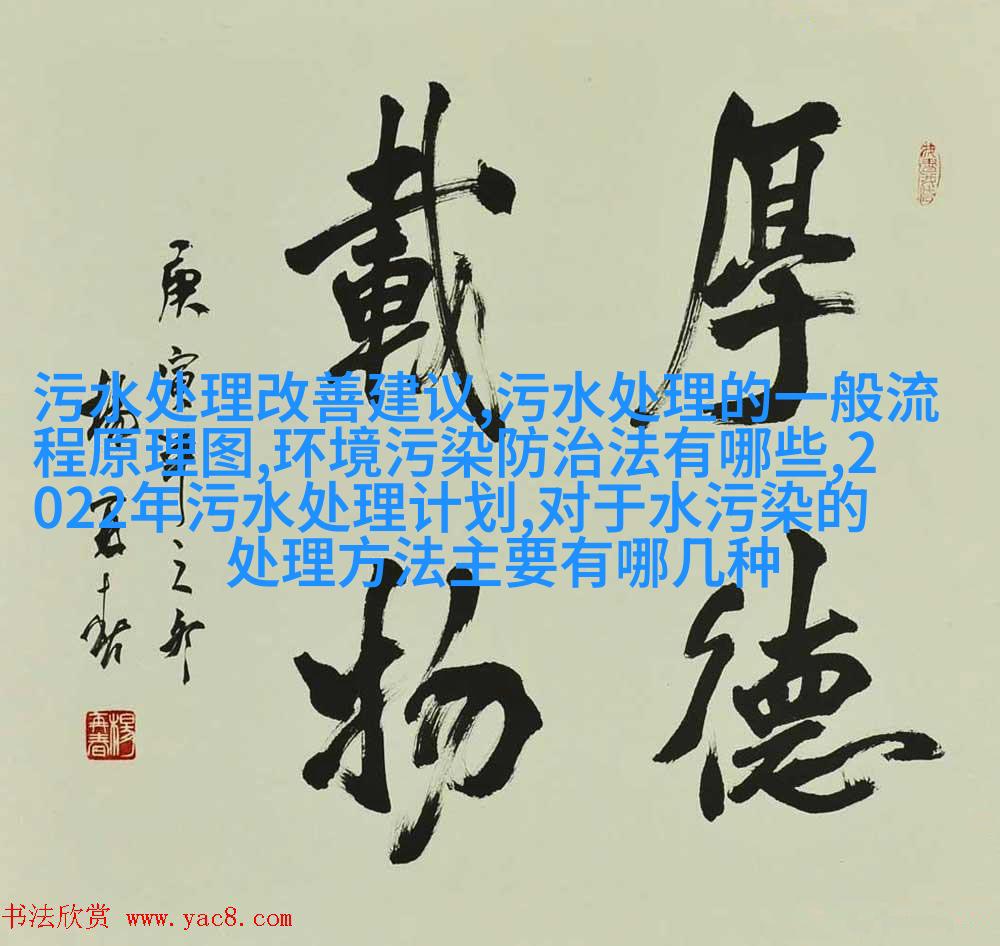 厚德
載物
庚寅年之
楊再春
楊再春
污水处理改善建议,污水处理的一般流
程原理图,环境污染防治法有哪些,2
022年污水处理计划,对于水污染的
处理方法主要有哪几种
书法欣赏 www.yac8.com